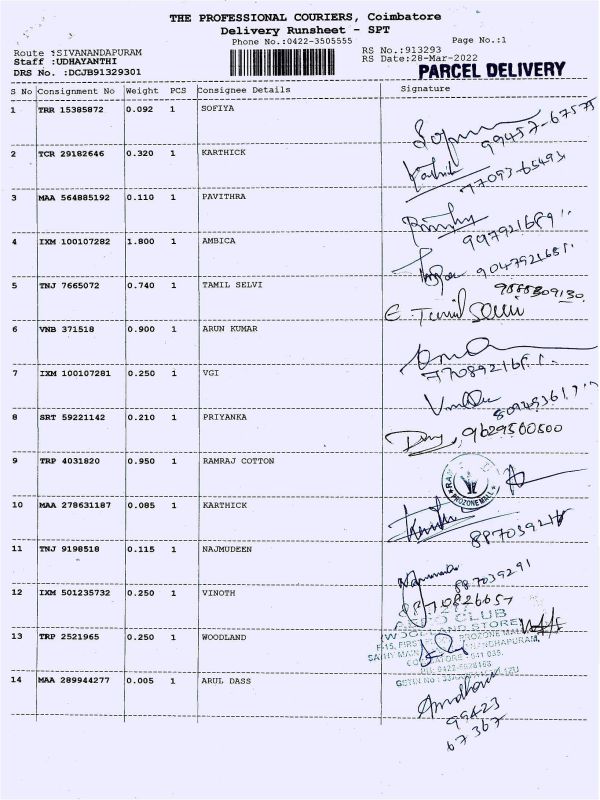 THE PROFESSIONAL COURIERS, Coimbatore
Delivery Runsheet - SPT
Phone No.:0422-3505555
Page No.:1
Route :SIVANANDAPURAM
RS No.:913293
Staff :UDHAYANTHI
RS Date:28-Mar-2022
DRS No. :DCJB91329301
PARCEL DELIVERY
S No Consignment No Weight PCS Consignee Details Signature
1 TRR 15385872 0.092 1 SOFIYA
99457-67575
2 TCR 29182646 0.320 1 KARTHICK
77093-65493
3 MAA 564885192 0.110 1 PAVITHRA
4 IXM 100107282 1.800 1 AMBICA
5 TNJ 7665072 0.740 1 TAMIL SELVI
E Tamil Selvi
6 VNB 371518 0.900 1 ARUN KUMAR
7 IXM 100107281 0.250 1 VGI
8 SRT 59221142 0.210 1 PRIYANKA
9629560500
9 TRP 4031820 0.950 1 RAMRAJ COTTON
PROZONE MALL
10 MAA 278631187 0.085 1 KARTHICK
11 TNJ 9198518 0.115 1 NAJMUDEEN
887039291
12 IXM 501235732 0.250 1 VINOTH
8870826657
CLUB
WOODLAND STORE
13 TRP 2521965 0.250 1 WOODLAND
PROZONE MALL
14 MAA 289944277 0.005 1 ARUL DASS
99423
67367